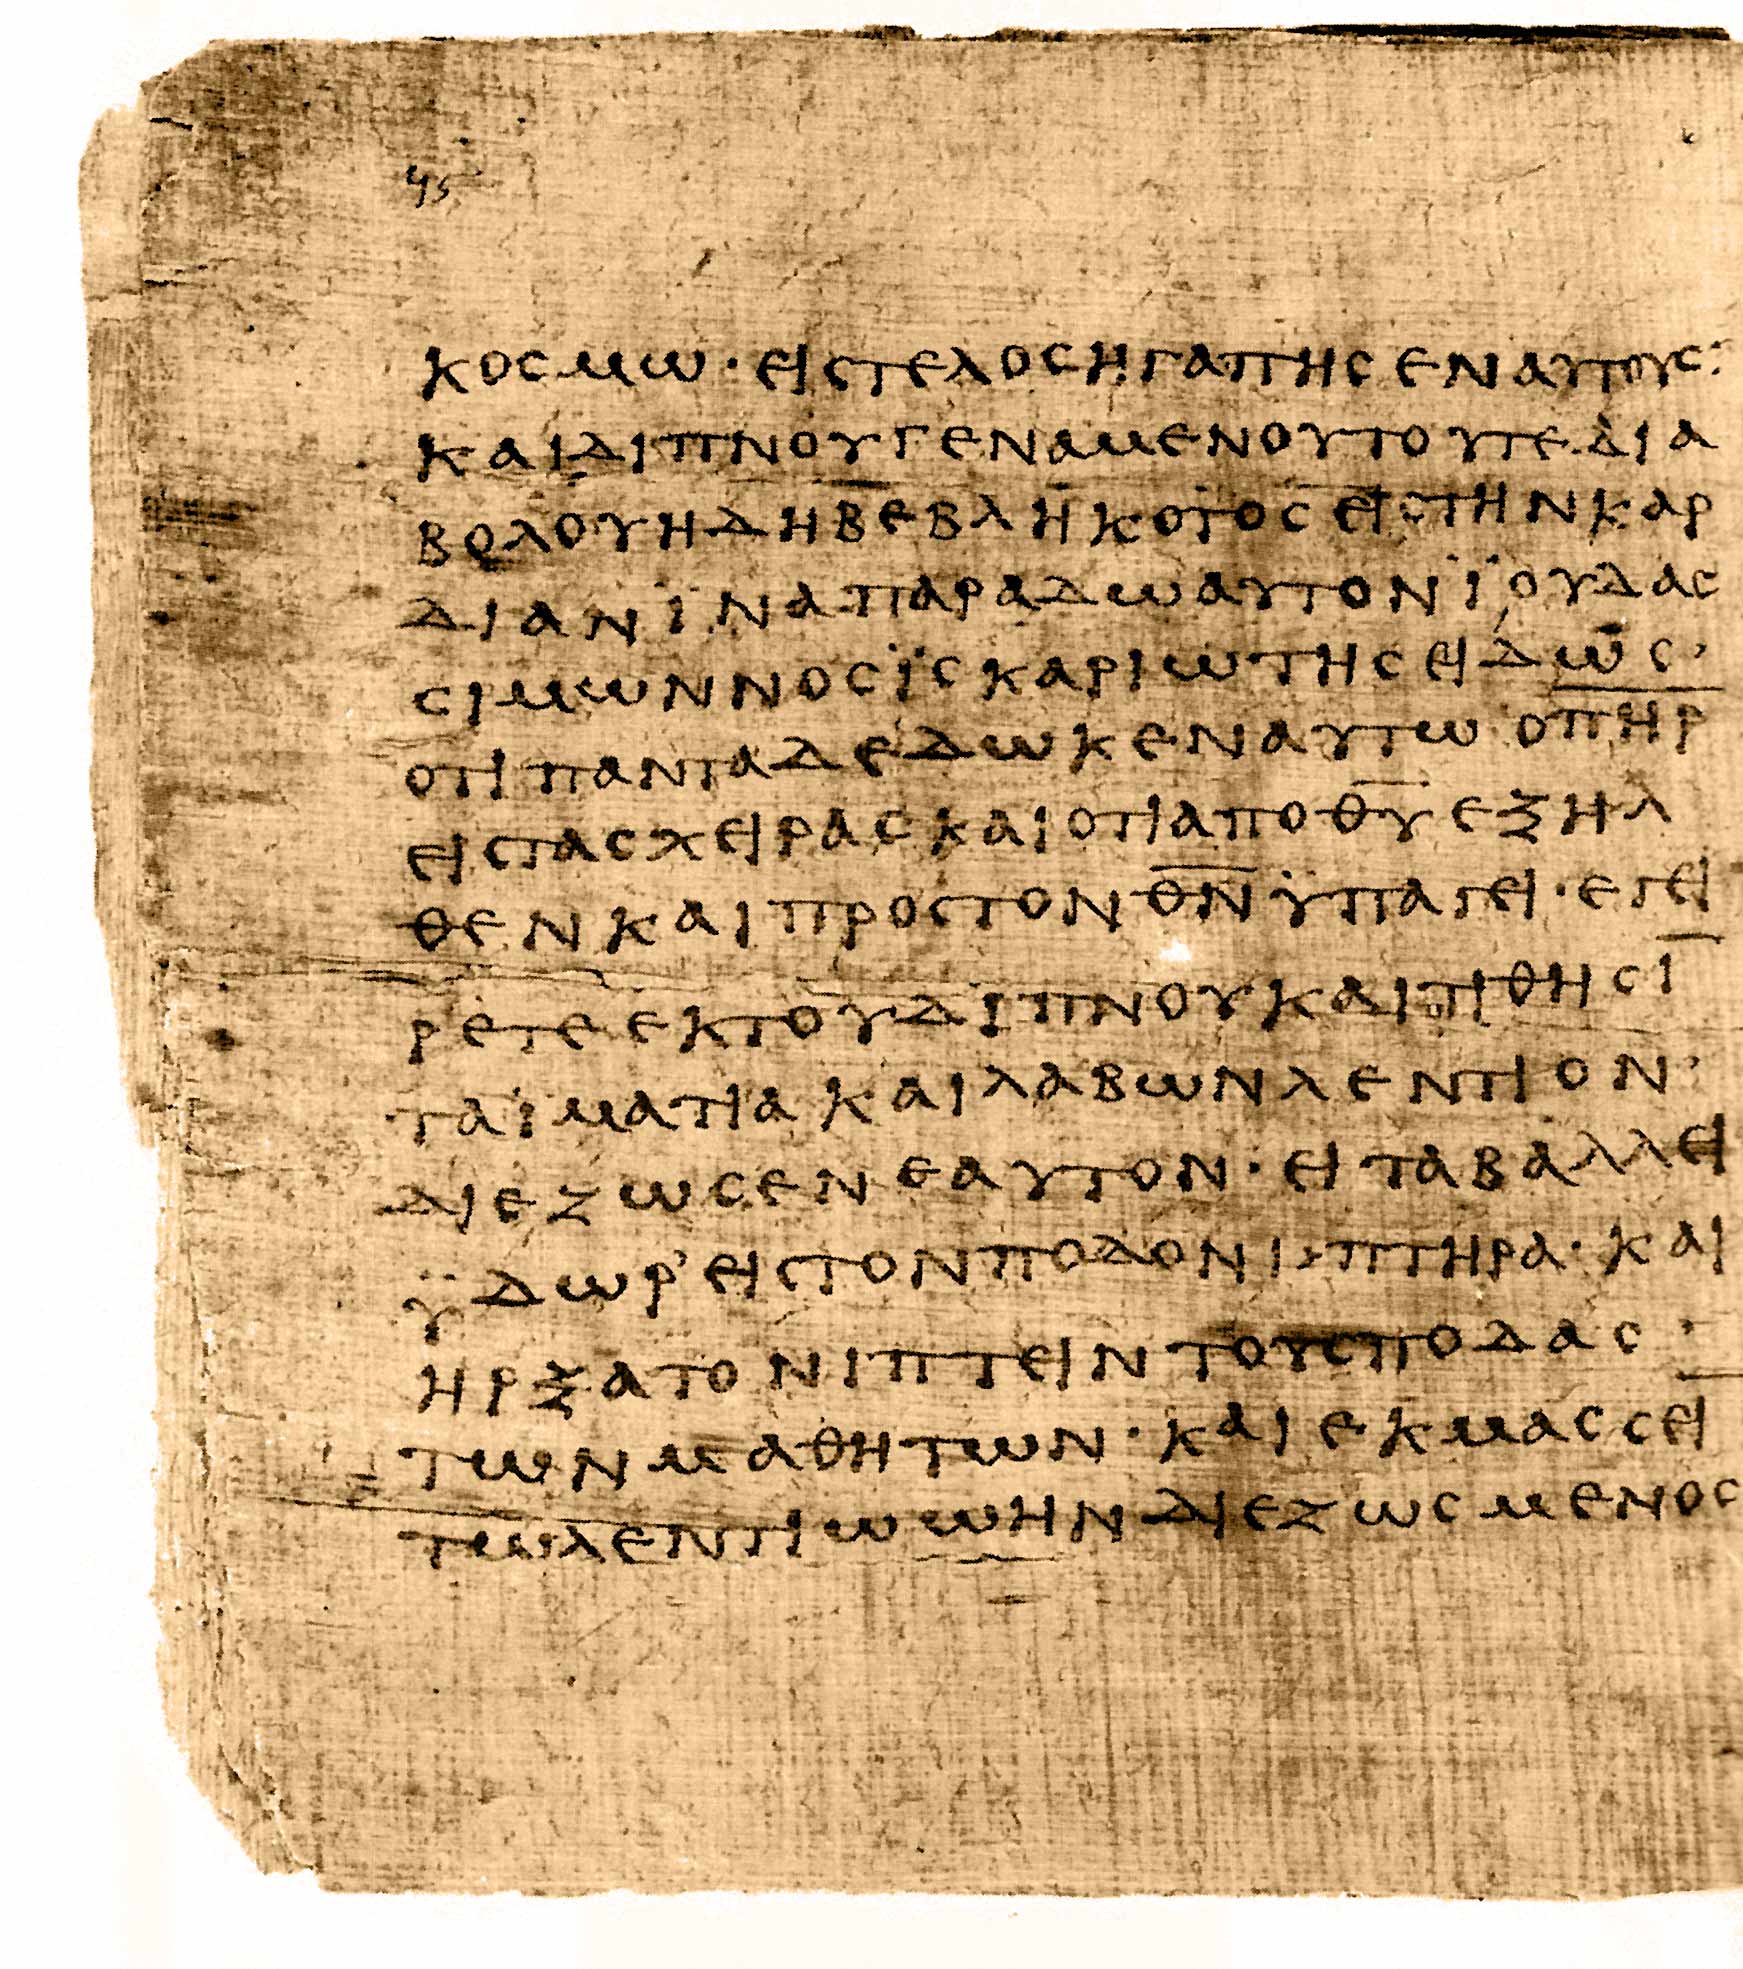 ϥⲋ
ΚΟϹΜΩ · ΕΙϹΤΕΛΟϹΗΓΑΠΗϹΕΝΑΥΤΟΥϹ:
ΚΑΙΔΙΠΝΟΥΓΕΝΑΜΕΝΟΥΤΟΥΤΕΔΙΑ
ΒΟΛΟΥΗΔΗΒΕΒΛΗΚΟΤΟϹΕΙϹΤΗΝΚΑΡ
ΔΙΑΝΪΝΑΠΑΡΑΔΩΑΥΤΟΝΪΟΥΔΑϹ
ϹΙΜΩΝΝΟϹΪϹΚΑΡΙΩΤΗϹΕΙΔΩϹ·
ΟΤΙΠΑΝΤΑΔΕΔΩΚΕΝΑΥΤΩΟΠ̅Η̅Ρ̅
ΕΙϹΤΑϹΧΕΙΡΑϹΚΑΙΟΤΙΑΠΟΘ̅Υ̅ΕΞΗΛ
ΘΕΝΚΑΙΠΡΟϹΤΟΝΘ̅Ν̅ΫΠΑΓΕΙ · ΕΓΕΙ
ΡΕΤΕΕΚΤΟΥΔΙΠΝΟΥΚΑΙΤΙΘΗϹΙ̅
ΤΑΪΜΑΤΙΑΚΑΙΛΑΒΩΝΛΕΝΤΙΟΝ·
ΔΙΕΖΩϹΕΝΕΑΥΤΟΝ · ΕΙΤΑΒΑΛΛΕΙ
ΫΔΩΡ’ΕΙϹΤΟΝΠΟΔΟΝΙΠΤΗΡΑ · ΚΑΙ
ΗΡΞΑΤΟΝΙΠΤΕΙΝΤΟΥϹΠΟΔΑϹ·
ΤΩΝΜΑΘΗΤΩΝ · ΚΑΙΕΚΜΑϹϹΕΙ̅
ΤΩΛΕΝΤΙΩΩΗΝΔΙΕΖΩϹΜΕΝΟϹ